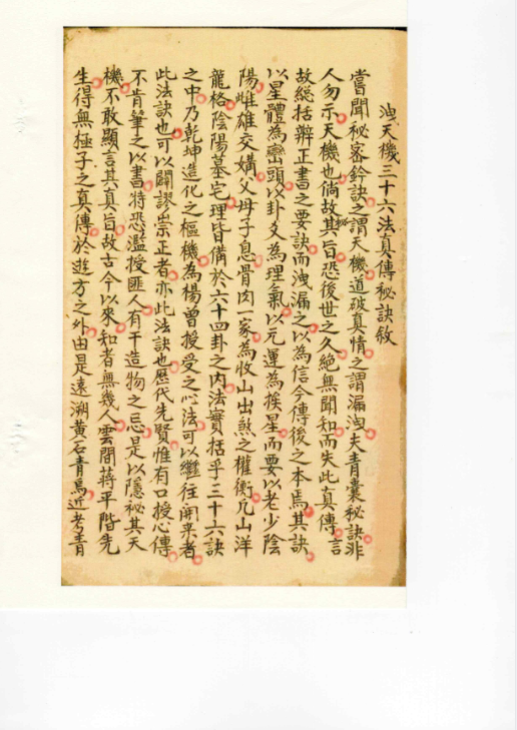 洩天機三十六法真傳秘訣敘
嘗聞秘密鈐訣之謂天機道破真情之謂漏洩夫青囊秘訣非
人勿示天機也倘故秘其旨恐後世之久絕無聞知而失此真傳言
故總括辨正書之要訣而洩漏之以為信今傳後之本焉其訣
以星體為巒頭以卦爻為理氣以元運為挨星而要以老少陰
陽雌雄交媾父母子息骨肉一家為收山出煞之權衡凡山洋
龍格陰陽墓宅理皆備於六十四卦之內法實括乎三十六訣
之中乃乾坤造化之樞機為楊曾授受之心法可以繼往開來者
此法訣也可以闢謬崇正者亦此法訣也歷代先賢惟有口授心傳
不肯筆之以書特恐濫授匪人有干造物之忌是以隱秘其天
機不敢顯言其真旨故古今以來知者無幾人雲間蔣平階先
生得無極子之真傳於遊方之外由是遠溯黃石青烏近考青